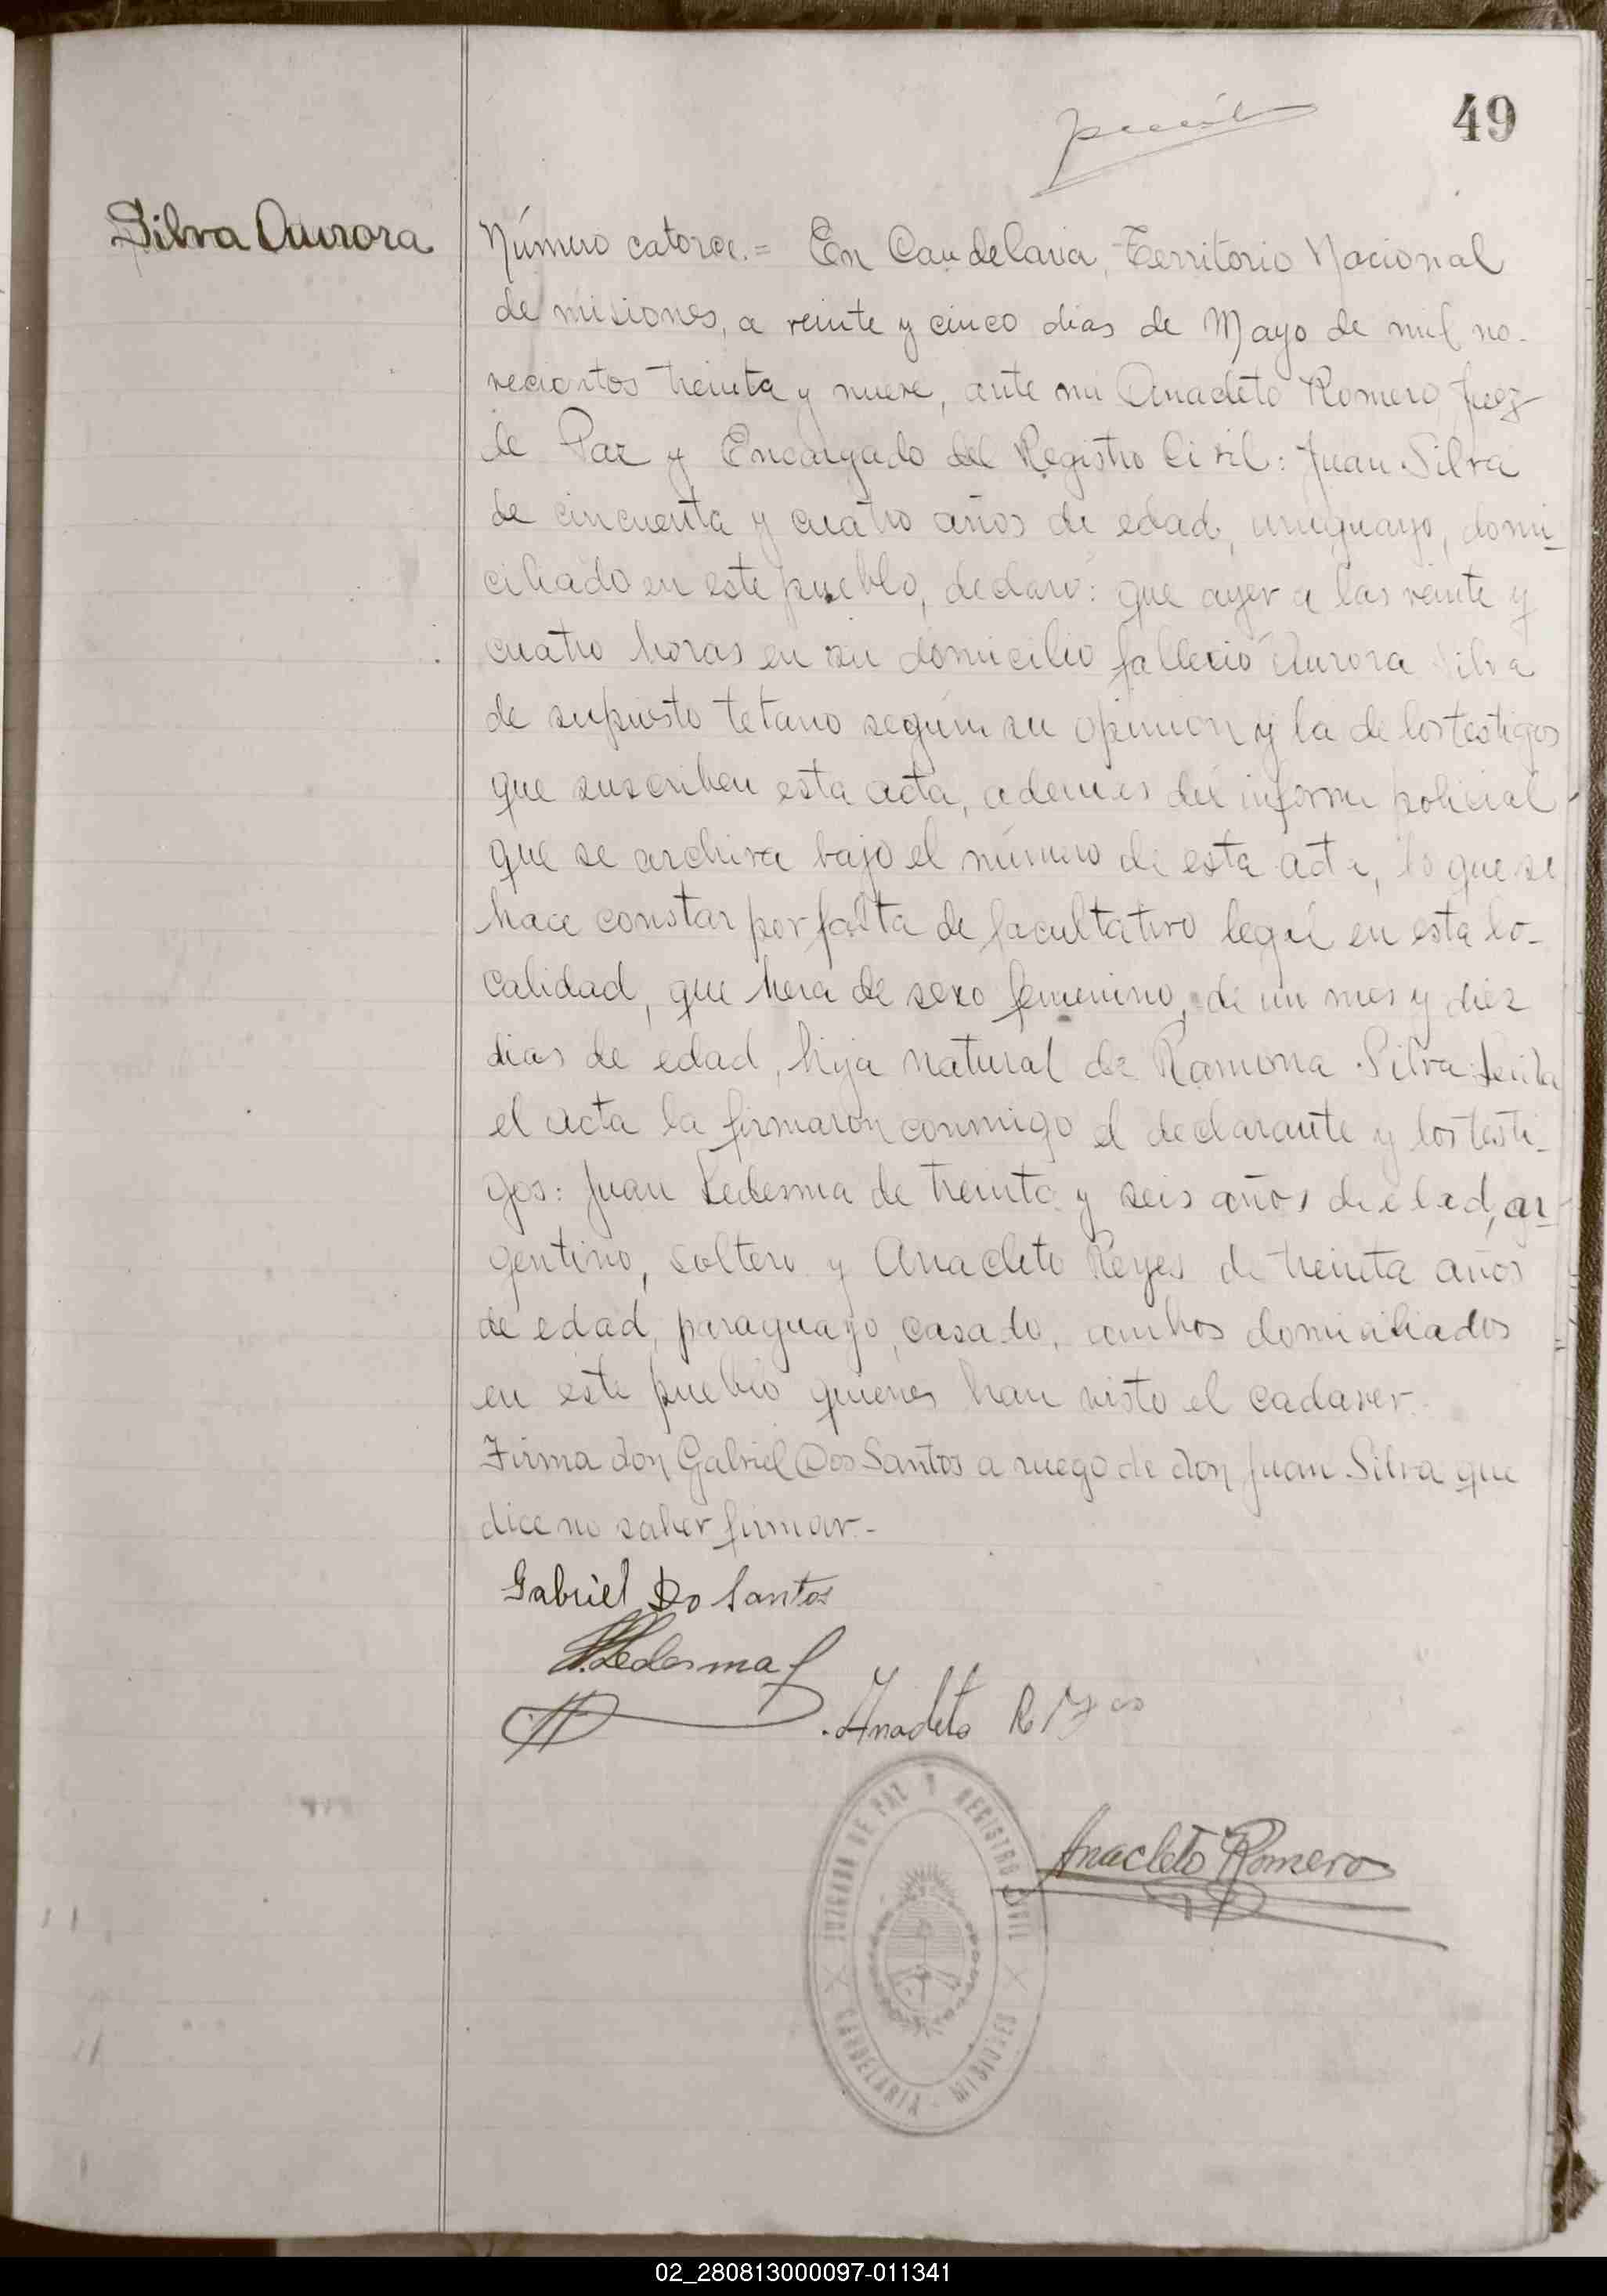 49
Silva Aurora
Número catorce.= En Candelaria, Territorio Nacional
de misiones, a veinte y cinco dias de Mayo de mil no-
vecientos treinta y nueve, ante mi Anacleto Romero Juez
de Paz y Encargado del Registro Civil: Juan Silva
de cincuenta y cuatro años de edad, uruguayo, domi-
ciliado en este pueblo, declaró: que ayer a las veinte y
cuatro horas en su domicilio falleció Aurora Silva
de supuesto tetano según su opinion y la de los testigos
que suscriben esta acta, ademas del informe policial
que se archiva bajo el número de esta acta, lo que se
hace constar por falta de facultativo legal en esta lo-
calidad, que hera de sexo femenino, de un mes y diez
dias de edad, hija natural de Ramona Silva. Leida
el acta la firmaron conmigo el declarante y los testi-
gos: Juan Ledesma de treinta y seis años de edad, ar-
gentino, soltero y Anacleto Reyes de treinta años
de edad, paraguayo, casado, ambos domiciliados
en este pueblo quienes han visto el cadaver.
Firma don Gabriel Dos Santos a ruego de don Juan Silva que
dice no saber firmar.-
Gabriel Do Santos
Ledesma
Anacleto
Anacleto Romero
JUZGADO DE PAZ Y REGISTRO CIVIL
CANDELARIA - MISIONES
02_280813000097-011341